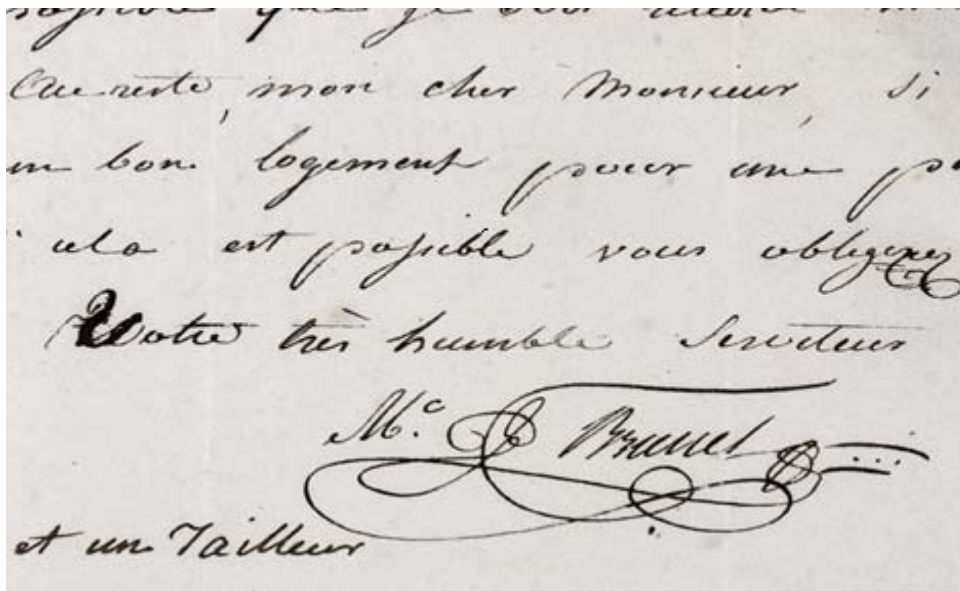 que je
Au reste, mon cher Monsieur, si
un bon logement pour une
cela est possible vous obligerez
Votre très humble Serviteur
Mc. Brunet
et un Tailleur